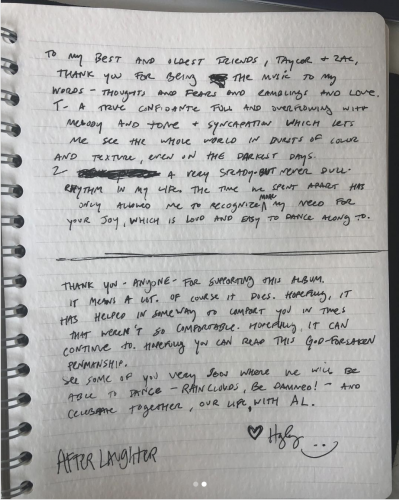 TO MY BEST AND OLDEST FRIENDS, TAYLOR + ZAC,
THANK YOU FOR BEING THE MUSIC TO MY
WORDS - THOUGHTS AND FEARS AND RAMBLINGS AND LOVE.
T - A TRUE CONFIDANTE FULL AND OVERFLOWING WITH
MELODY AND TONE + SYNCAPATION WHICH LETS
ME SEE THE WHOLE WORLD IN BURSTS OF COLOR
AND TEXTURE, EVEN ON THE DARKEST DAYS.
Z A VERY STEADY BUT NEVER DULL
RHYTHM IN MY LIFE. THE TIME WE SPENT APART HAS
ONLY ALLOWED ME TO RECOGNIZE MORE MY NEED FOR
YOUR JOY, WHICH IS LOUD AND EASY TO DANCE ALONG TO.
THANK YOU - ANYONE - FOR SUPPORTING THIS ALBUM.
IT MEANS A LOT. OF COURSE IT DOES. HOPEFULLY, IT
HAS HELPED IN SOME WAY TO COMFORT YOU IN TIMES
THAT WEREN'T SO COMFORTABLE. HOPEFULLY, IT CAN
CONTINUE TO. HOPEFULLY YOU CAN READ THIS GOD-FORSAKEN
PENMANSHIP.
SEE SOME OF YOU VERY SOON WHERE WE WILL BE
ABLE TO DANCE - RAINCLOUDS, BE DAMNED! - AND
CELEBRATE TOGETHER, OUR LIFE, WITH AL.
♡ Hayley
AFTER LAUGHTER